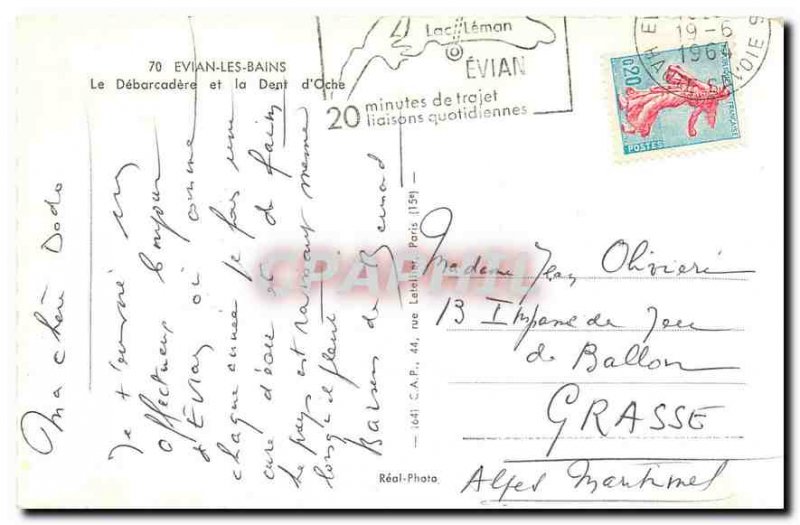 70 EVIAN-LES-BAINS
Le Débarcadère et la Dent d'Oche
Lac Léman
ÉVIAN
20 minutes de trajet
liaisons quotidiennes
19-6
1964
0,20
POSTES
FRANÇAISE
Ma chère Dodo
Je t'envoie un
affectueux bonjour
d'Évian où comme
chaque année je fais une
cure d'eau et de faim
Le pays est ravissant même
lorsqu'il pleut
Baisers de Bernard
1641 C.A.P., 44, rue Letellier, Paris (15e)
Réal-Photo
CPAPHIL
Madame Jean Olivieri
13 Impasse du Jeu
de Ballon
GRASSE
Alpes Maritimes